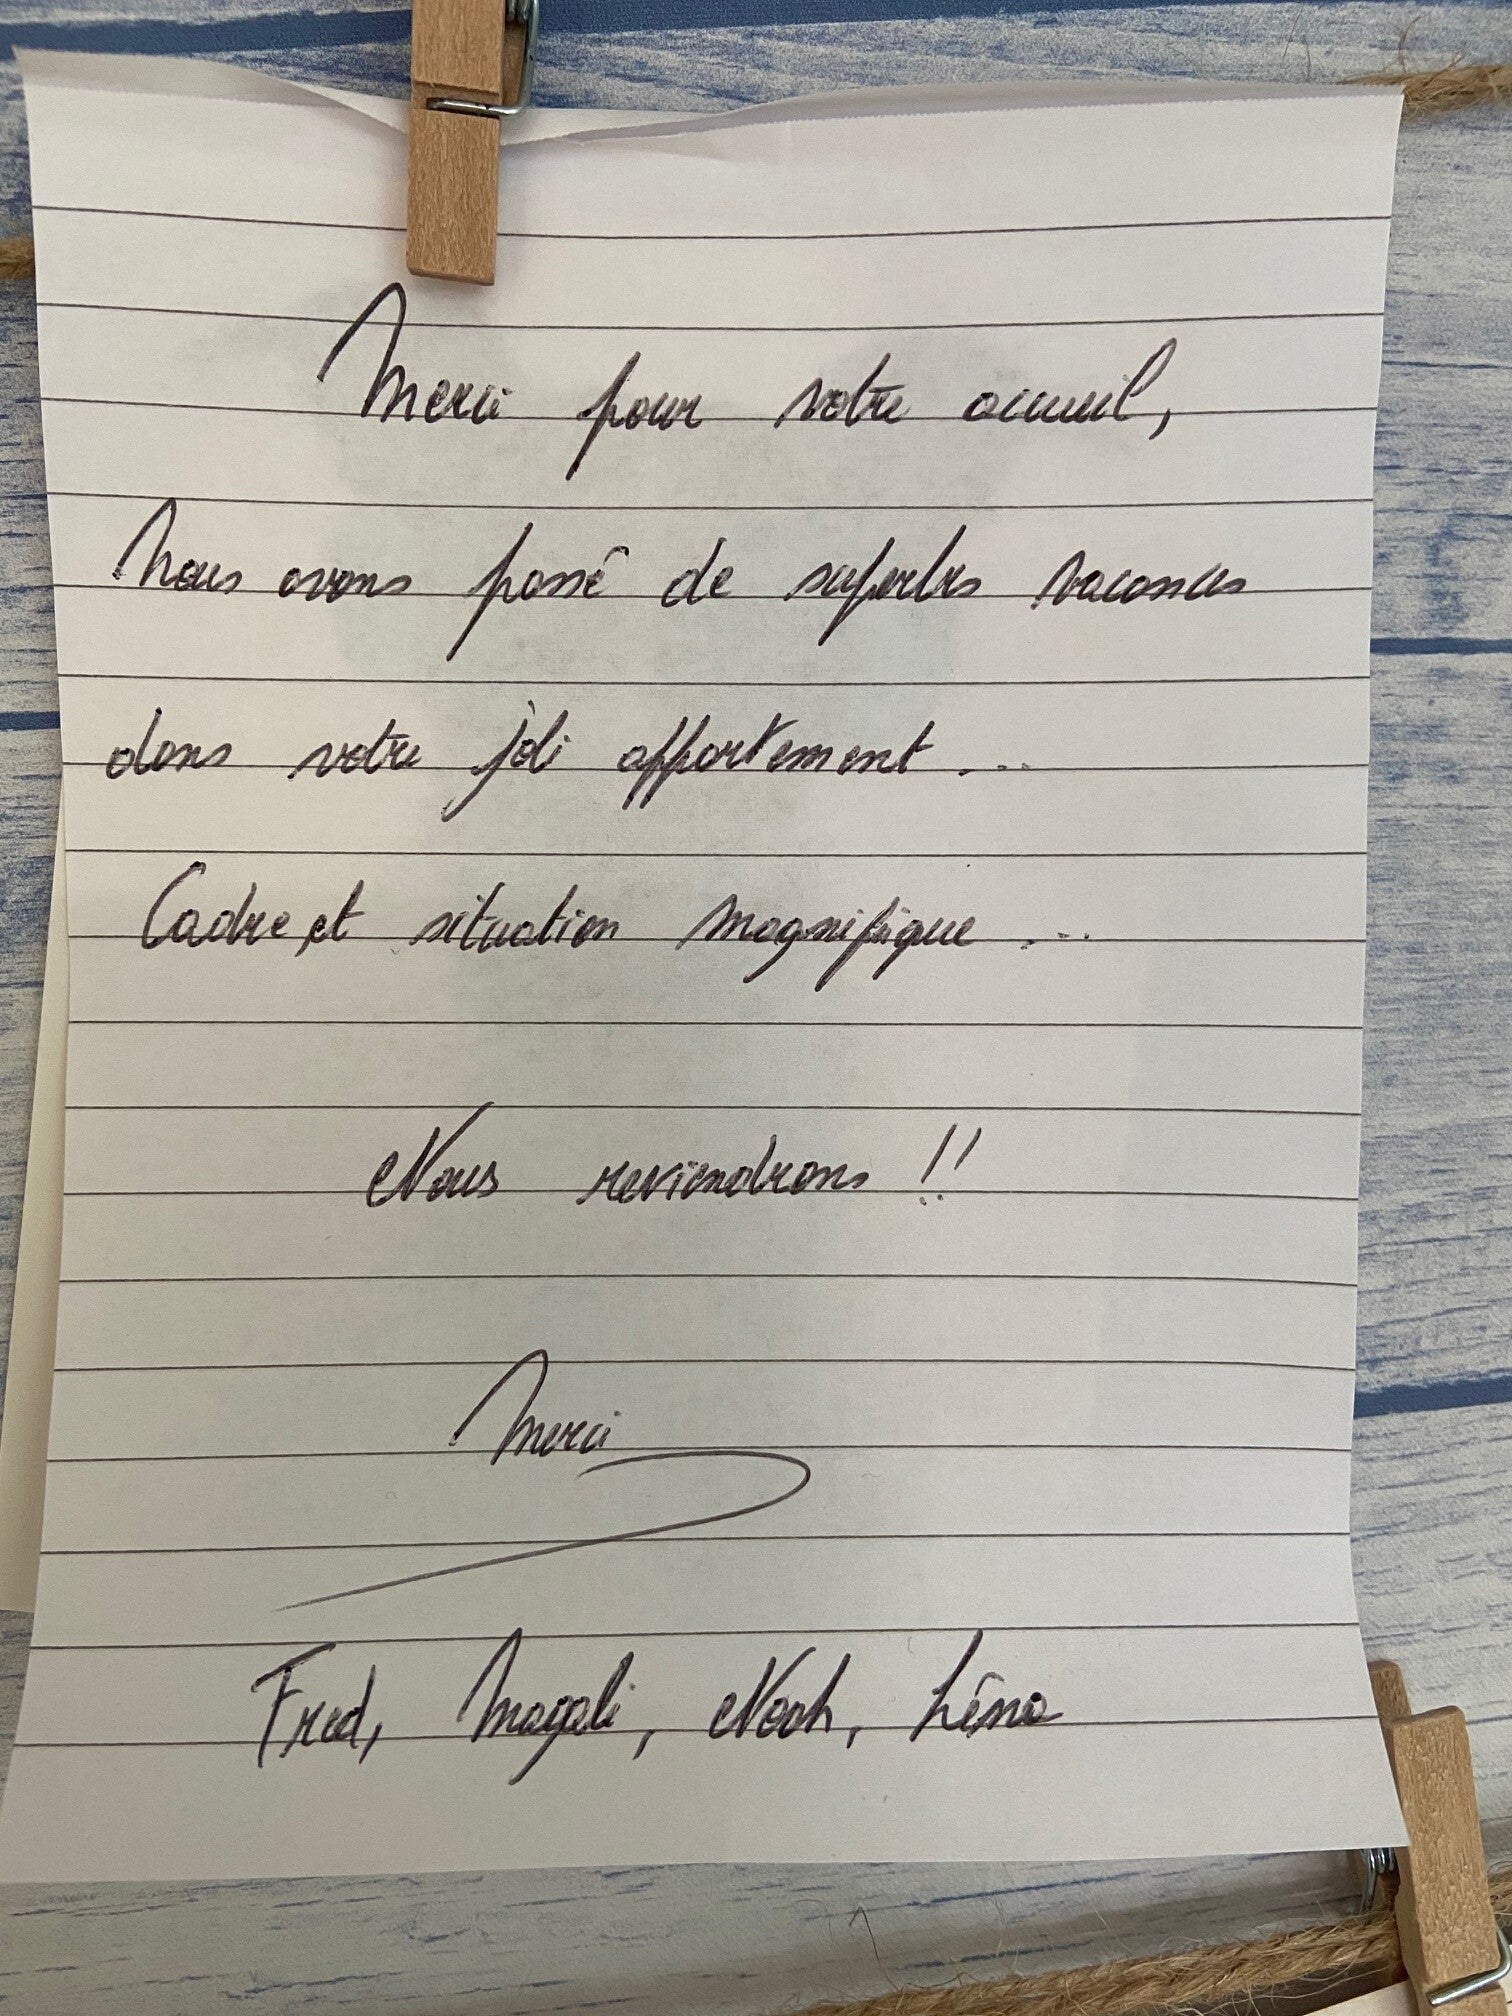 Merci pour votre accueil,
Nous avons passé de superbes vacances
dans votre joli appartement ...
Cadre et situation magnifique ...
Nous reviendrons !!
Merci
Fred, Magali, Noah, Léna